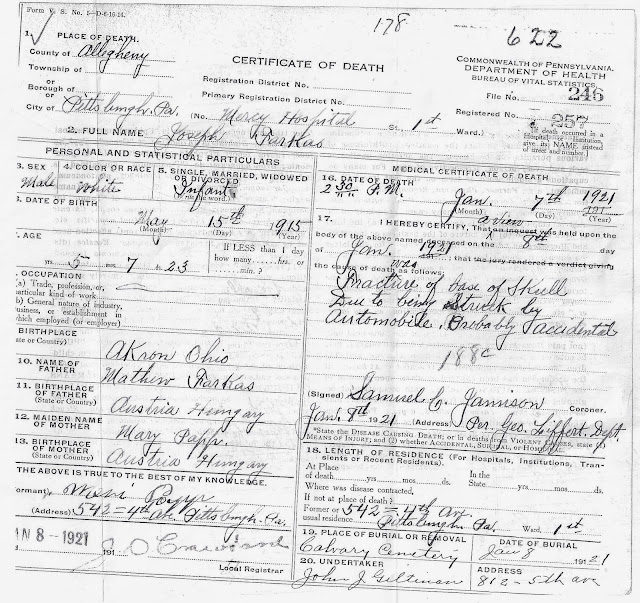 Form V. S. No. 5—D-6-16-14.
178
622
1. PLACE OF DEATH.
County of Allegheny
Township of
or
Borough of
or
City of Pittsburgh. Pa.
CERTIFICATE OF DEATH
Registration District No.
Primary Registration District No.
(No. Mercy Hospital St. 1st Ward.)
COMMONWEALTH OF PENNSYLVANIA.
DEPARTMENT OF HEALTH
BUREAU OF VITAL STATISTICS.
File No. 246
Registered No. 257
(If death occurred in a Hospital or Institution, give its NAME instead of street and number.)
2. FULL NAME Joseph Farkas
PERSONAL AND STATISTICAL PARTICULARS
3. SEX
Male
4. COLOR OR RACE
White
5. SINGLE, MARRIED, WIDOWED
OR DIVORCED
Infant
(Write the word.)
6. DATE OF BIRTH
May 15th 1915
(Month) (Day) (Year)
7. AGE
5 yrs. 7 mos. 23 ds.
If LESS than 1 day
how many hrs. or
min.?
OCCUPATION
(a) Trade, profession, or
particular kind of work
(b) General nature of industry,
business, or establishment in
which employed (or employer)
BIRTHPLACE
(State or Country)
Akron Ohio
10. NAME OF
FATHER
Mathew Farkas
11. BIRTHPLACE
OF FATHER
(State or Country)
Austria Hungary
12. MAIDEN NAME
OF MOTHER
Mary Papp.
13. BIRTHPLACE
OF MOTHER
(State or Country)
Austria Hungary
THE ABOVE IS TRUE TO THE BEST OF MY KNOWLEDGE.
(Informant)
(Address) 542=4th Ave. Pittsburgh. Pa.
JAN 8-1921
191
Local Registrar
MEDICAL CERTIFICATE OF DEATH
16. DATE OF DEATH
2 30 P.M. Jan. 7th 1921
(Month) (Day) (Year)
17. I HEREBY CERTIFY, That an inquest was held upon the
a view
body of the above named deceased on the 8th day
of Jan. 1921 ; that the jury rendered a verdict giving
the cause of death as follows:
was
Fracture of base of Skull
Due to being Struck by
Automobile. Probably accidental
188c
(Signed) Samuel C. Jamison Coroner.
Jan. 8th 1921 (Address) Per. Geo. Liffort. Dept.
*State the DISEASE CAUSING DEATH; or in deaths from VIOLENT CAUSES, state
MEANS OF INJURY; and (2) whether ACCIDENTAL, SUICIDAL, or HOMICIDAL.
18. LENGTH OF RESIDENCE (For Hospitals, Institutions, Transients or Recent Residents).
At Place
of death yrs. mos. ds.
In the
State yrs. mos. ds.
Where was disease contracted,
If not at place of death?
Former or
usual residence 542=4th Av.
Pittsburgh Pa. Ward. 1st
19. PLACE OF BURIAL OR REMOVAL
Calvary Cemetery
DATE OF BURIAL
Jan 8 1921
20. UNDERTAKER
John J. Giltinan
ADDRESS
812-5th ave